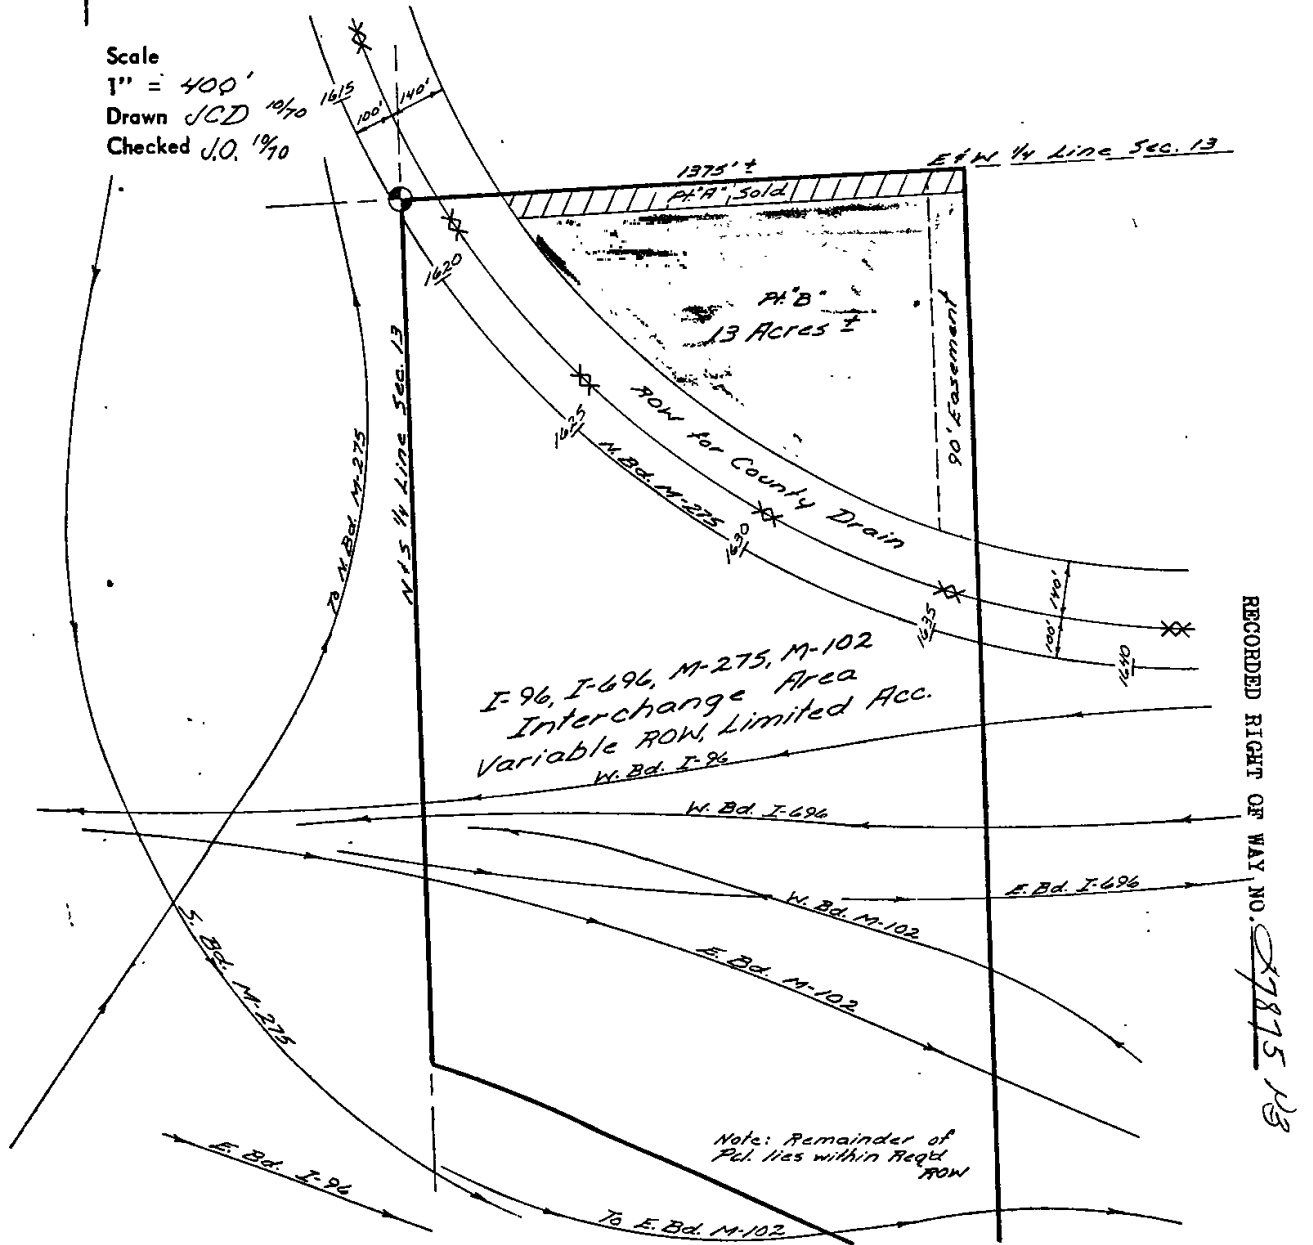 Scale
1" = 400'
Drawn JCD 10/70
Checked J.O. 10/70
1615
100'
140'
1375' ±
E & W 1/4 Line Sec. 13
Pt. "A", Sold
1620
Pt. "B"
13 Acres ±
N & S 1/4 Line Sec. 13
90' Easement
ROW for County Drain
1625
N. Bd. M-275
1630
To N. Bd. M-275
1635
140'
100'
1640
I-96, I-696, M-275, M-102
Interchange Area
Variable ROW, Limited Acc.
W. Bd. I-96
W. Bd. I-696
E. Bd. I-696
W. Bd. M-102
E. Bd. M-102
S. Bd. M-275
E. Bd. I-96
To E. Bd. M-102
Note: Remainder of
Pcl. lies within Req'd
ROW
RECORDED RIGHT OF WAY NO.